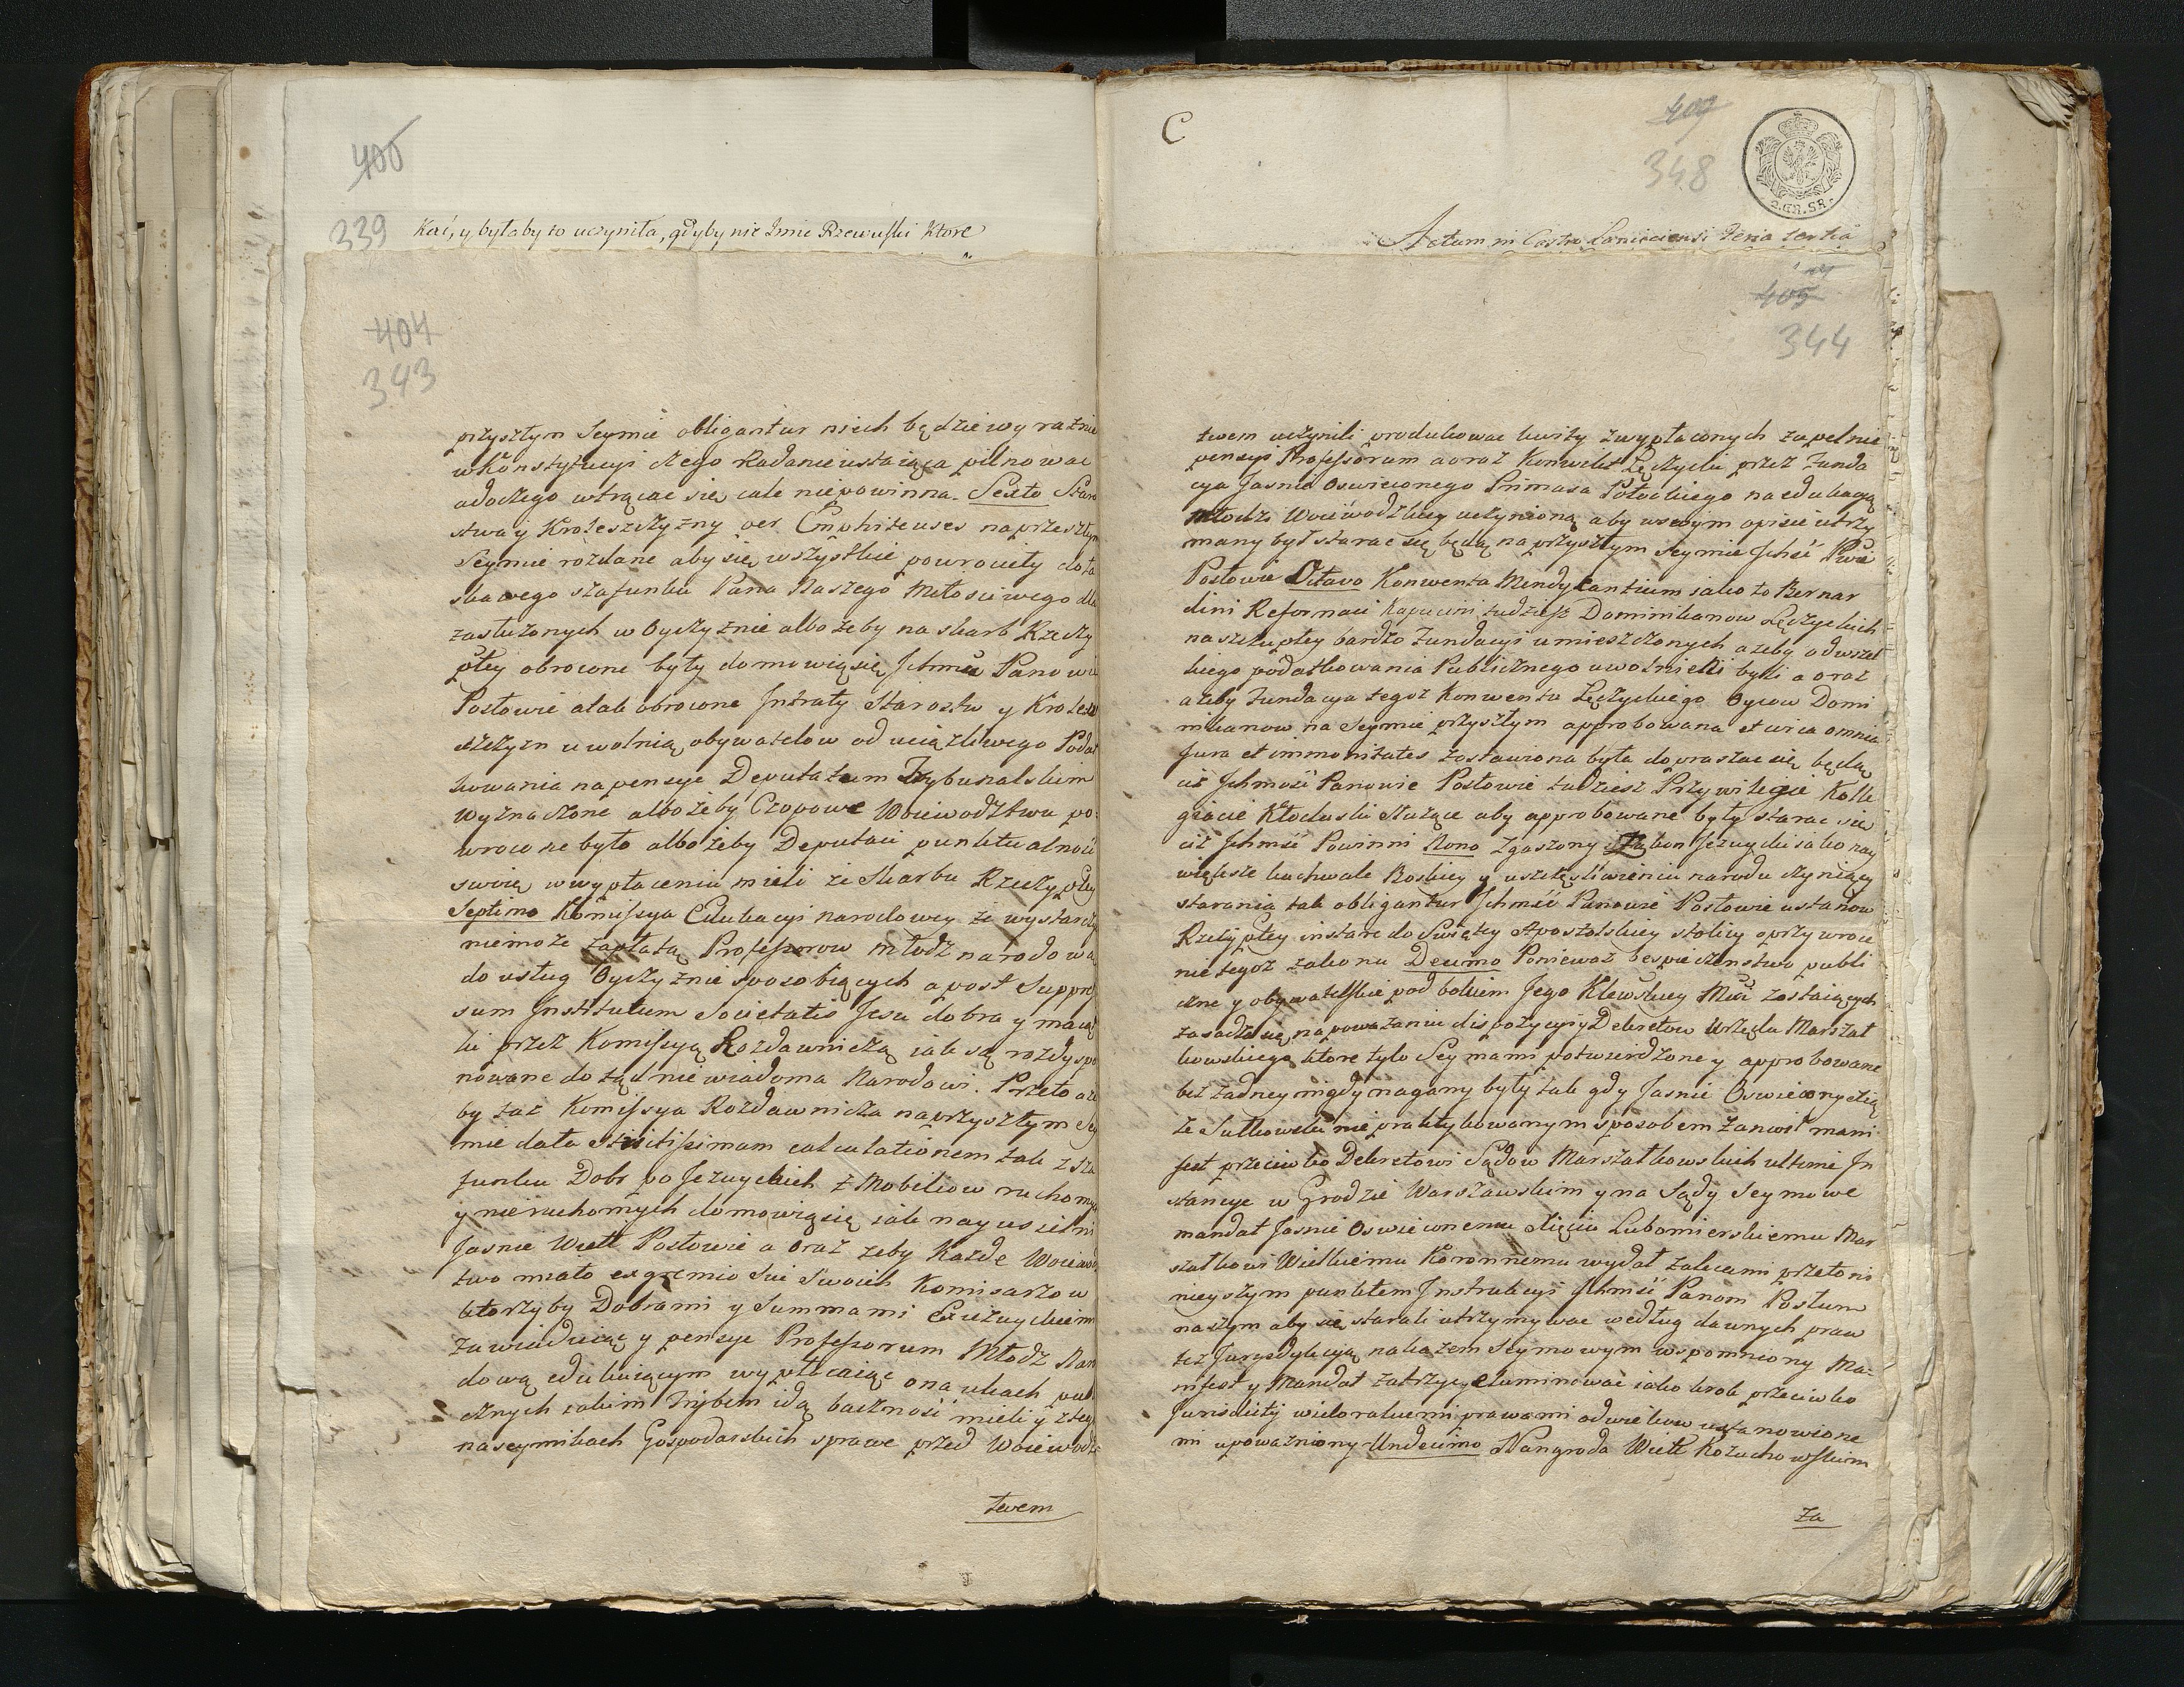 400
339
Kać, y byłaby to uczyniła, gdyby nie Imie Rzewuski Ktore
404
343
przyszłym Seymie obligantur niech będzie wyraznie
w Konstytucyi czego Rada nieustaiąca pilnowac
a do czego wtrącac się cale niepowinna. Sexto Staro
stwa y Kroleszczyzny per Emphiteuses na przeszłym
Seymie rozdane aby się wszystkie powrociły do ła
skawego szafunku Pana Naszego Miłosciwego dla
zasłużonych w Oyczyznie albo żeby na skarb Rzeczy
płtey obrocone były domowią się Jchmć Panowie
Posłowie a tak obrocone Jntraty Starostw y Krolew
szczyzn uwolnią obywatelow od uciążliwego Podat
kowania na pensye Deputatom Trybunalskim
wyznaczone albo żeby Czopowe Woiewodztwu po:
wrocone było albo żeby Deputaci punktualność
swoię w wypłaceniu mieli ze Skarbu Rzeczypltey
Septimo Komissya Edukacyi narodowey że wystarczy
niemoże zapłatą Professorow młodz narodową
do usług Oyczyznie sposobiących a post Suppres
sum Jnstitutum Societatis Jesu dobra y maiąt
ki przez Komissyą Rozdawniczą iak są rozdyspo
nowane dotąd niewiadoma Narodowi. Przeto aże
by taż Komissya Rozdawnicza na przyszłym Sey
mie dała strictissimam calculationem tak z sza
funku Dobr po Jezuyckich z Mobiliow ruchomych
y nieruchomych domowią się iak nayusilni
Jasnie Wiell Posłowie a oraz żeby Każde Woiewodz
two miało ex gremio sui Swoich Komisarzow
ktorzyby Dobrami y Summami Exiezuyckiemi
zawiaduiąc y pensye Professorum Młodz Naro
dową edukuiącym wypłacaiąc o naukach pub
cznych iakim trybem idą bacznosc mieli y z tey
na seymikach Gospodarskich sprawe przed Woiewodz
twem
C
407
348
2.GR.SR.
Actum in Castro Lanciciensi Feria tertia
405
344
twem uczynili produkowac kwity z wypłaconych zapełnie
pensyi Professorum a oraz Konwikt Łęczycki przez Funda
cya Jasnie Oswieconego Primasa Potockiego na edukacyą
Młodzi Woiewodzkiey uczynioną aby w swoym opisie utrzy
many był starac się będą na przyszłym Seymie Jchść PPwie
Posłowie Octavo Konwenta Mendykantium iako to Bernar
dini Reformaci Kapucini tudziesz Dominikanow Łęczyckich
na szczupłey bardzo Fundacyi umieszczonych azeby od wszel
kiego podatkowania Publicznego uwolnieni byli a oraz
ażeby Fundacya tegoż Konwentu Łęczyckiego Oycow Domi
nikanow na Seymie przyszłym approbowana et circa omnia
Jura et immonitates zostawiona była dopraszac się będą
ciż Jchmość Panowie Posłowie tudziesz Przywileie Kolle
giacie Kłodawski służące aby approbowane były starac się
ciż Jchmść Powinni Nono Zgaszony Zakon Jezuycki iako nay
większe ku chwale Boskiey y uszczęsliwieniu narodu czyniący
starania tak obligantur Jchmść Panowie Posłowie ust anow
Rzeczypltey instare do Swiętey Apostolskiey stolicy o przywroce
nie tegoż zakonu Decimo Ponieważ bespieczenstwo publi
czne y obywatelskie pod bokiem Jego Klewskiey Mści zostaiących
zasadza się na poważaniu dispozycyi y Dekretow Urzędu Marszał
kowskiego ktore tylo Seymami potwierdzone y approbowane
bez żadney nigdy nagany były tak gdy Jasnie Oswiecony Xią
że Sułkowski nie praktykowanym sposobem zaniosł mani
fest przeciwko Dekretowi Sądow Marszałkowskich ultimæ Jn
stancyæ w Grodzie Warszawskim y na Sądy Seymowe
mandat Jasnie Oswieconemu Xięciu Lubomierskiemu Mar
szałkowi Wielkiemu Koronnemu wydał zalecami przeto ni
nieyszym punktem Jnstrukcyi Jchmść Panom Posłom
naszym aby się starali utrzymywac według dawnych praw
też Jurysdykcyją nakazem Seymowym wspomniony Ma-
nifest y Mandat zatrzyc y eluminowac iako krok przeciwko
Jurisdictij wielorakiemi prawami od wiekow ustanowione
mi upoważniony Undecimo Nangroda Wiell Kożuchowskim
za